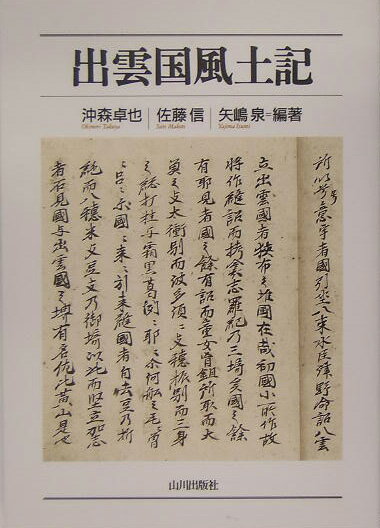 出雲国風土記
沖森卓也 佐藤 信 矢嶋 泉=編著
Okimori Takuya Sato Makoto Yajima Izumi
所以号意宇者國引坐八束水臣津野命詔八雲
立出雲國者狭布之堆國在哉初國小所作故
将作縫詔而栲衾志羅紀乃三埼矣國之餘
有耶見者國之餘有詔而童女胷鉏所取而大
魚之支太衝別而波多須々支穂振別而三身
之 打挂与霜黒葛 々耶々尓河船之毛々曽
々呂々尓國々来々引来縫國者自去豆乃折
絶而八穂米支豆支乃御埼以此而堅立加志
者石見國与出雲國之堺有名 比賣山是也
山川出版社